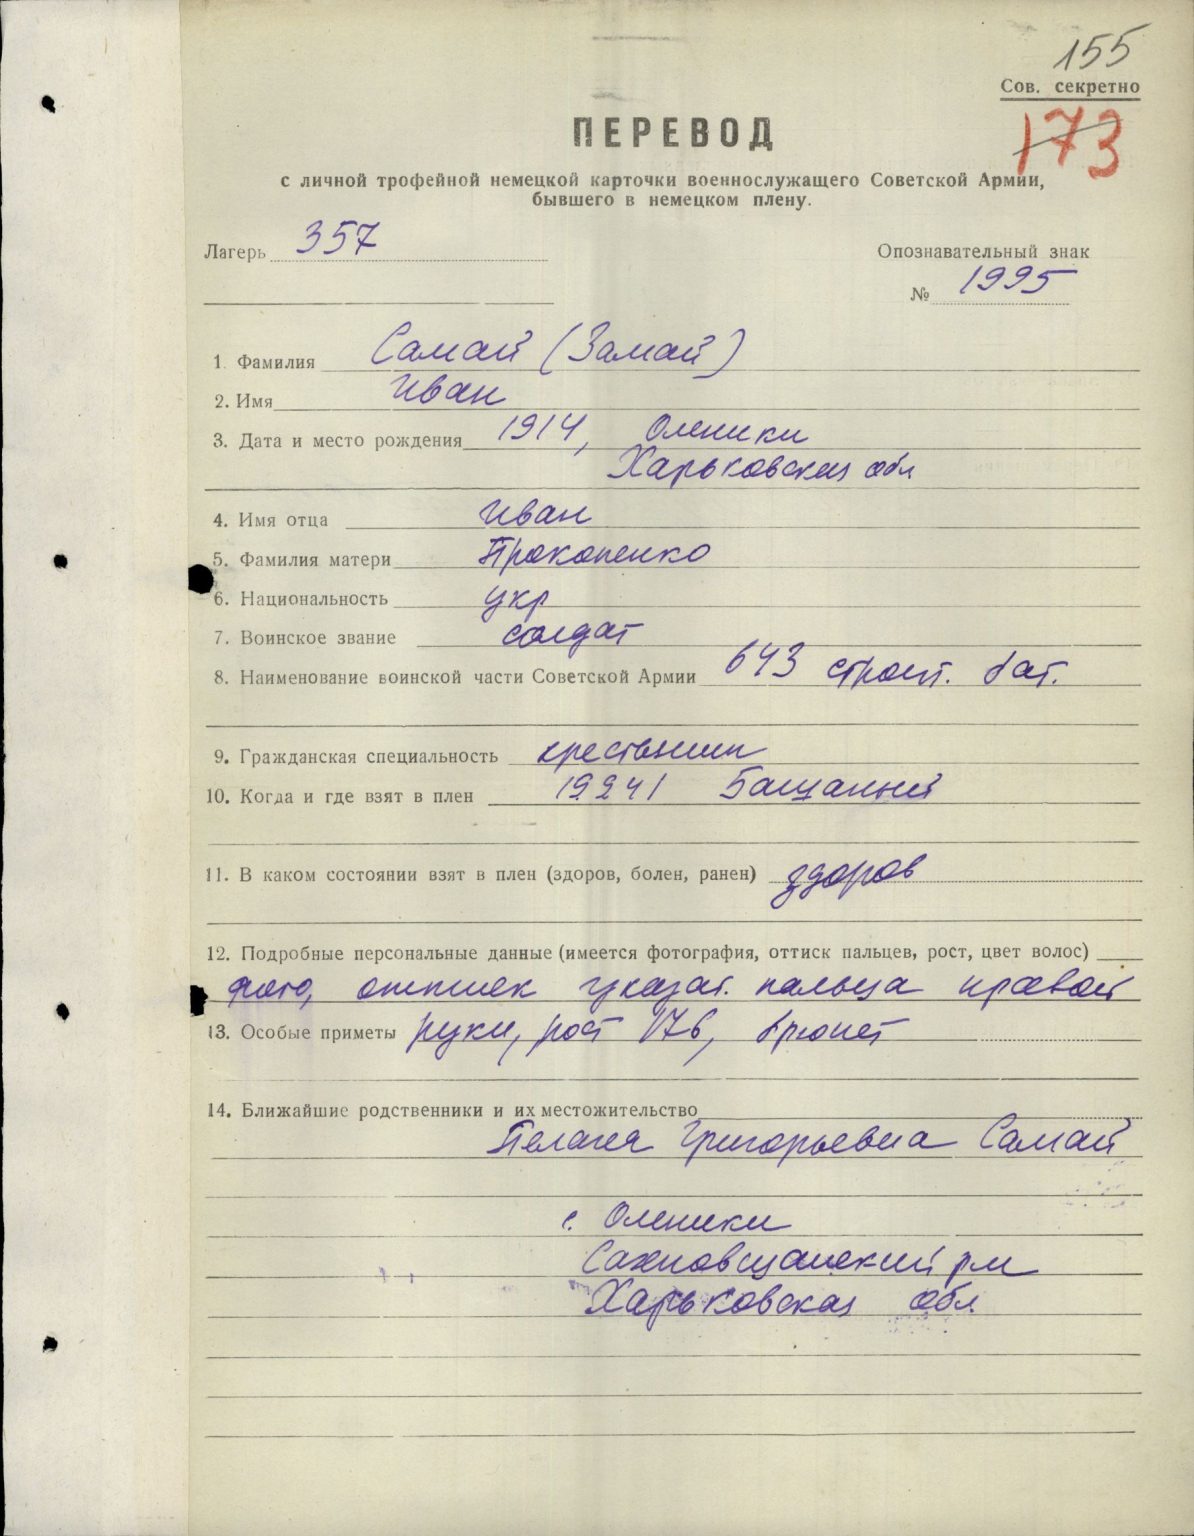 155
Сов. секретно
173
ПЕРЕВОД
с личной трофейной немецкой карточки военнослужащего Советской Армии,
бывшего в немецком плену.
Лагерь 357
Опознавательный знак
№ 1995
1. Фамилия Самай (Замай)
2. Имя Иван
3. Дата и место рождения 1914, Оленики
Харьковская обл
4. Имя отца Иван
5. Фамилия матери Прокопенко
6. Национальность укр
7. Воинское звание солдат
8. Наименование воинской части Советской Армии 643 строит. бат.
9. Гражданская специальность крестьянин
10. Когда и где взят в плен
11. В каком состоянии взят в плен (здоров, болен, ранен) здоров
12. Подробные персональные данные (имеется фотография, оттиск пальцев, рост, цвет волос)
фото, оттиск указат. пальца правой
13. Особые приметы руки, рост 176, брюнет
14. Ближайшие родственники и их местожительство
Пелагея Григорьевна Самай
с. Оленики
Сахновщанский
Харьковская обл.